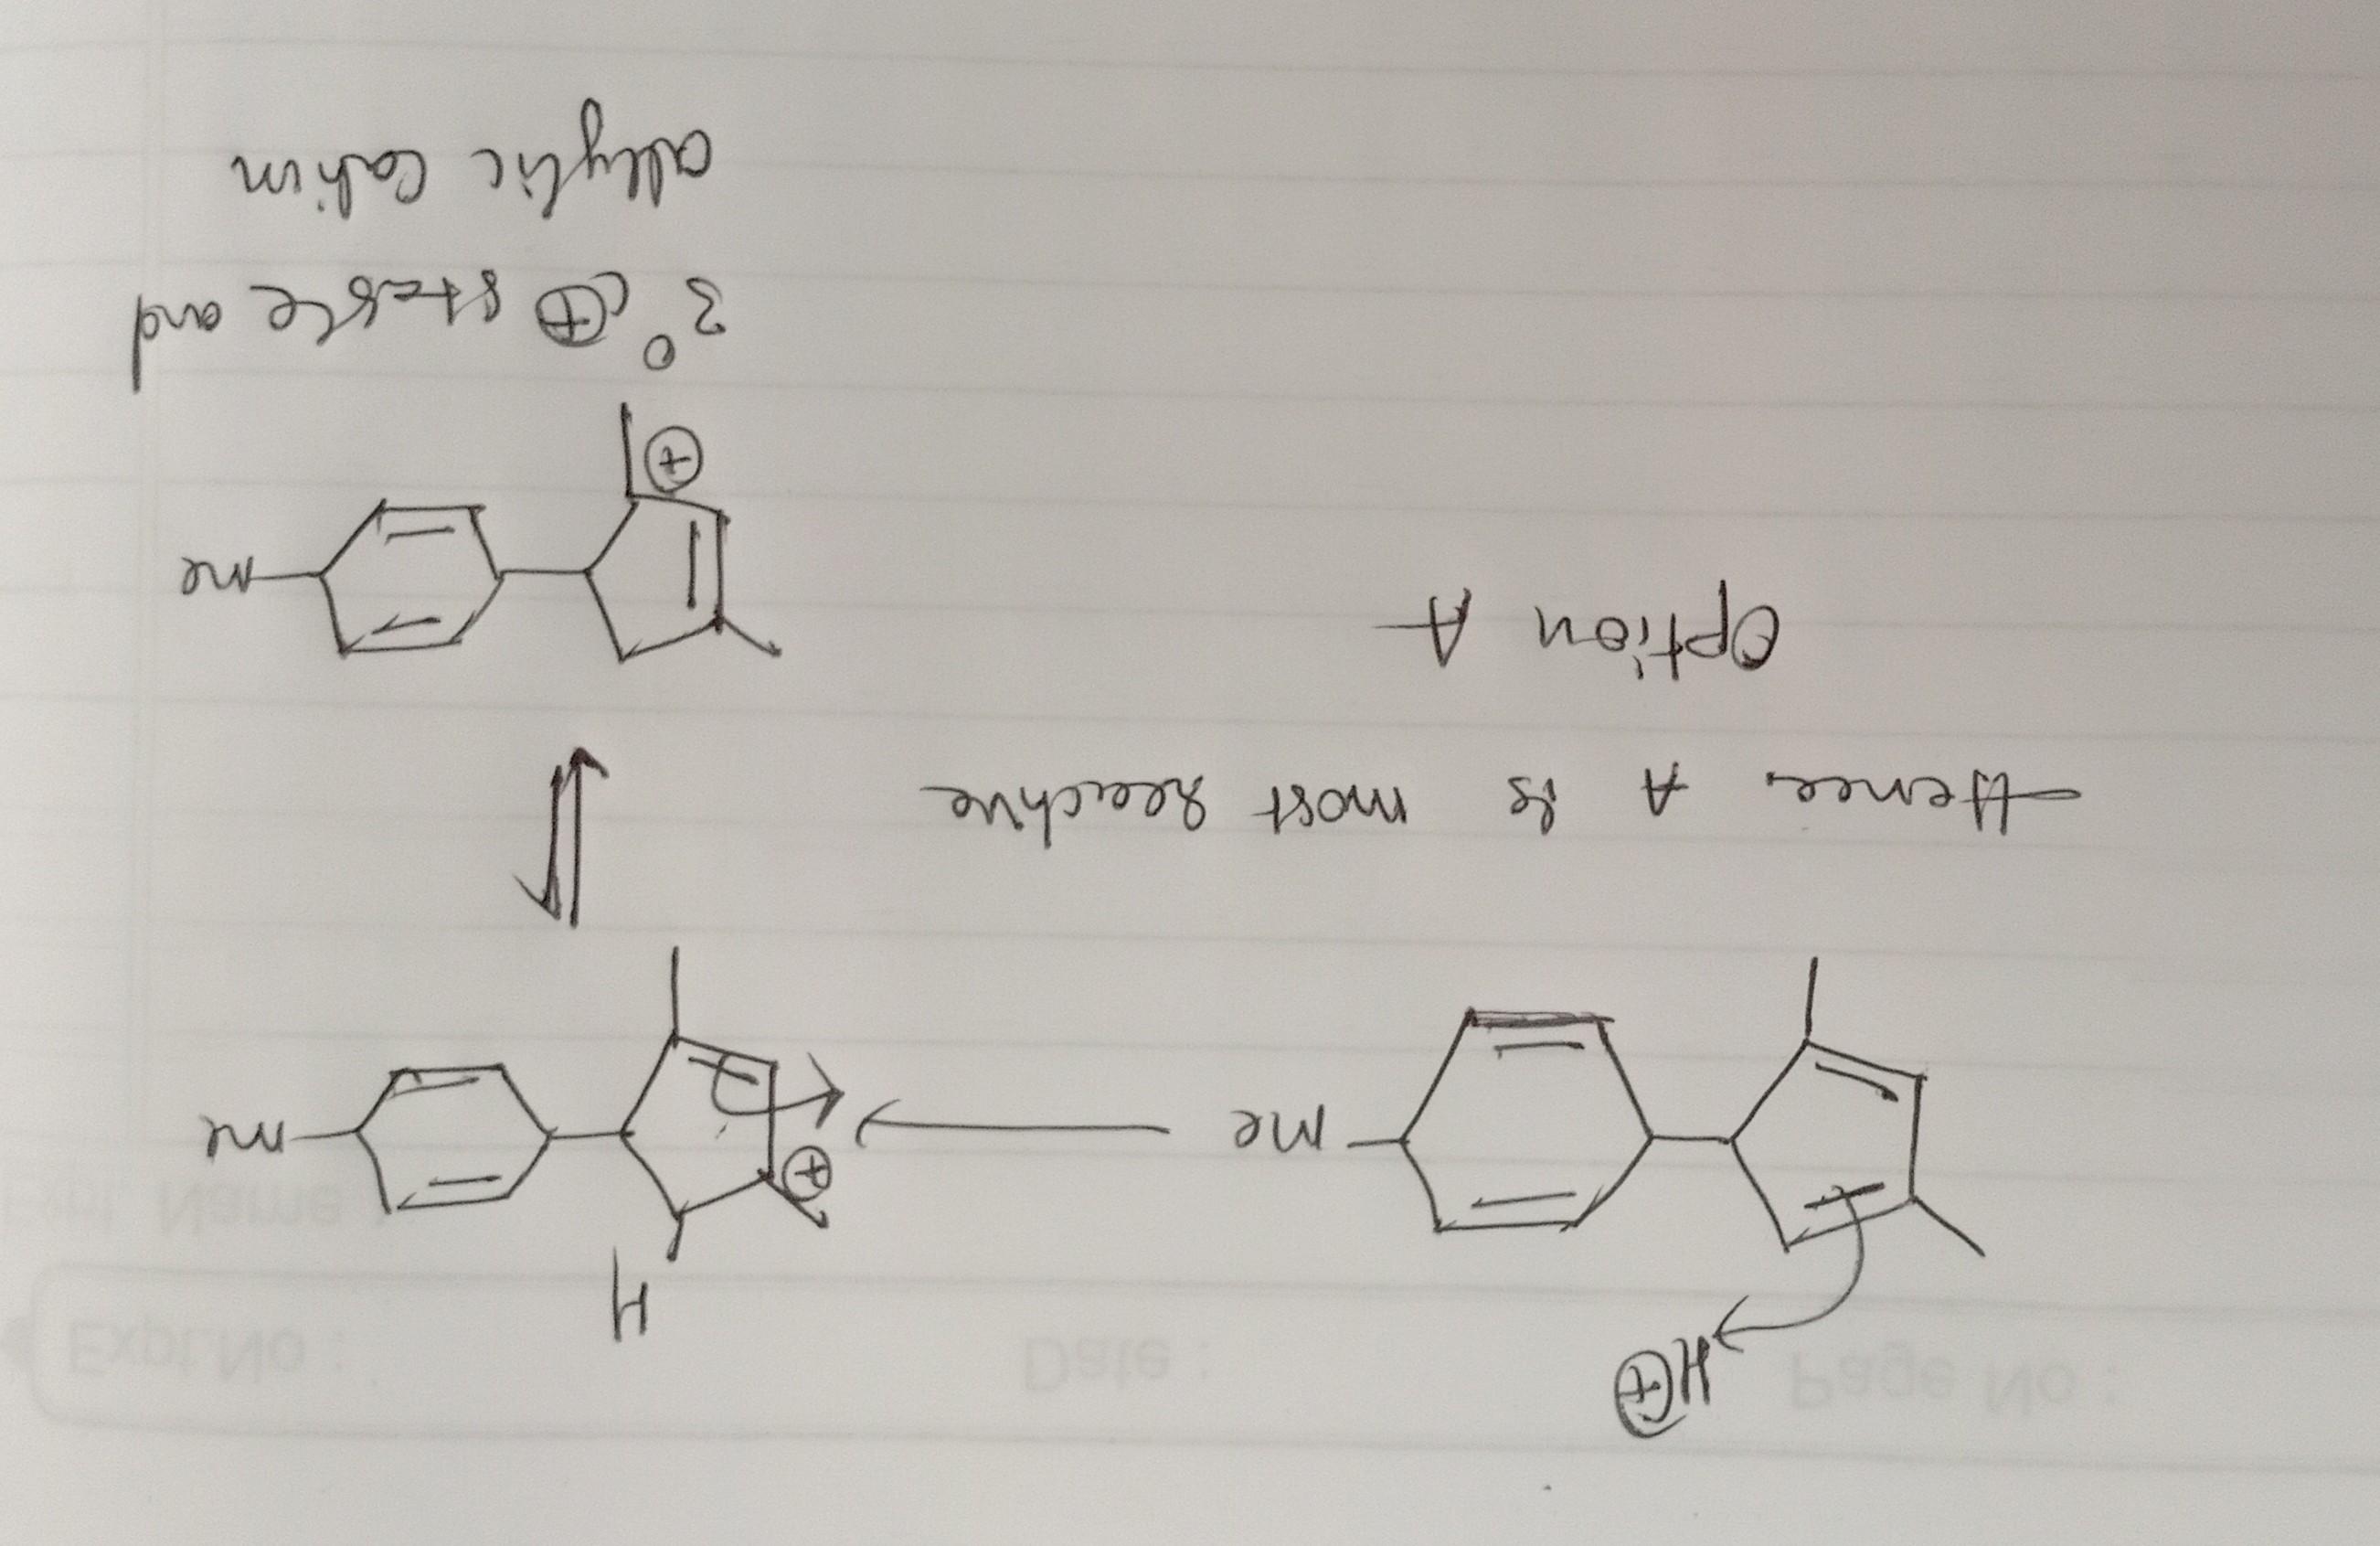 Page No : Date : Expt.No :
H⊕
H
Expt. Name
⊕
Me Me
Hence A is most Reactive
Option A
Me
⊕
3° C⊕ stable and
allylic Cation